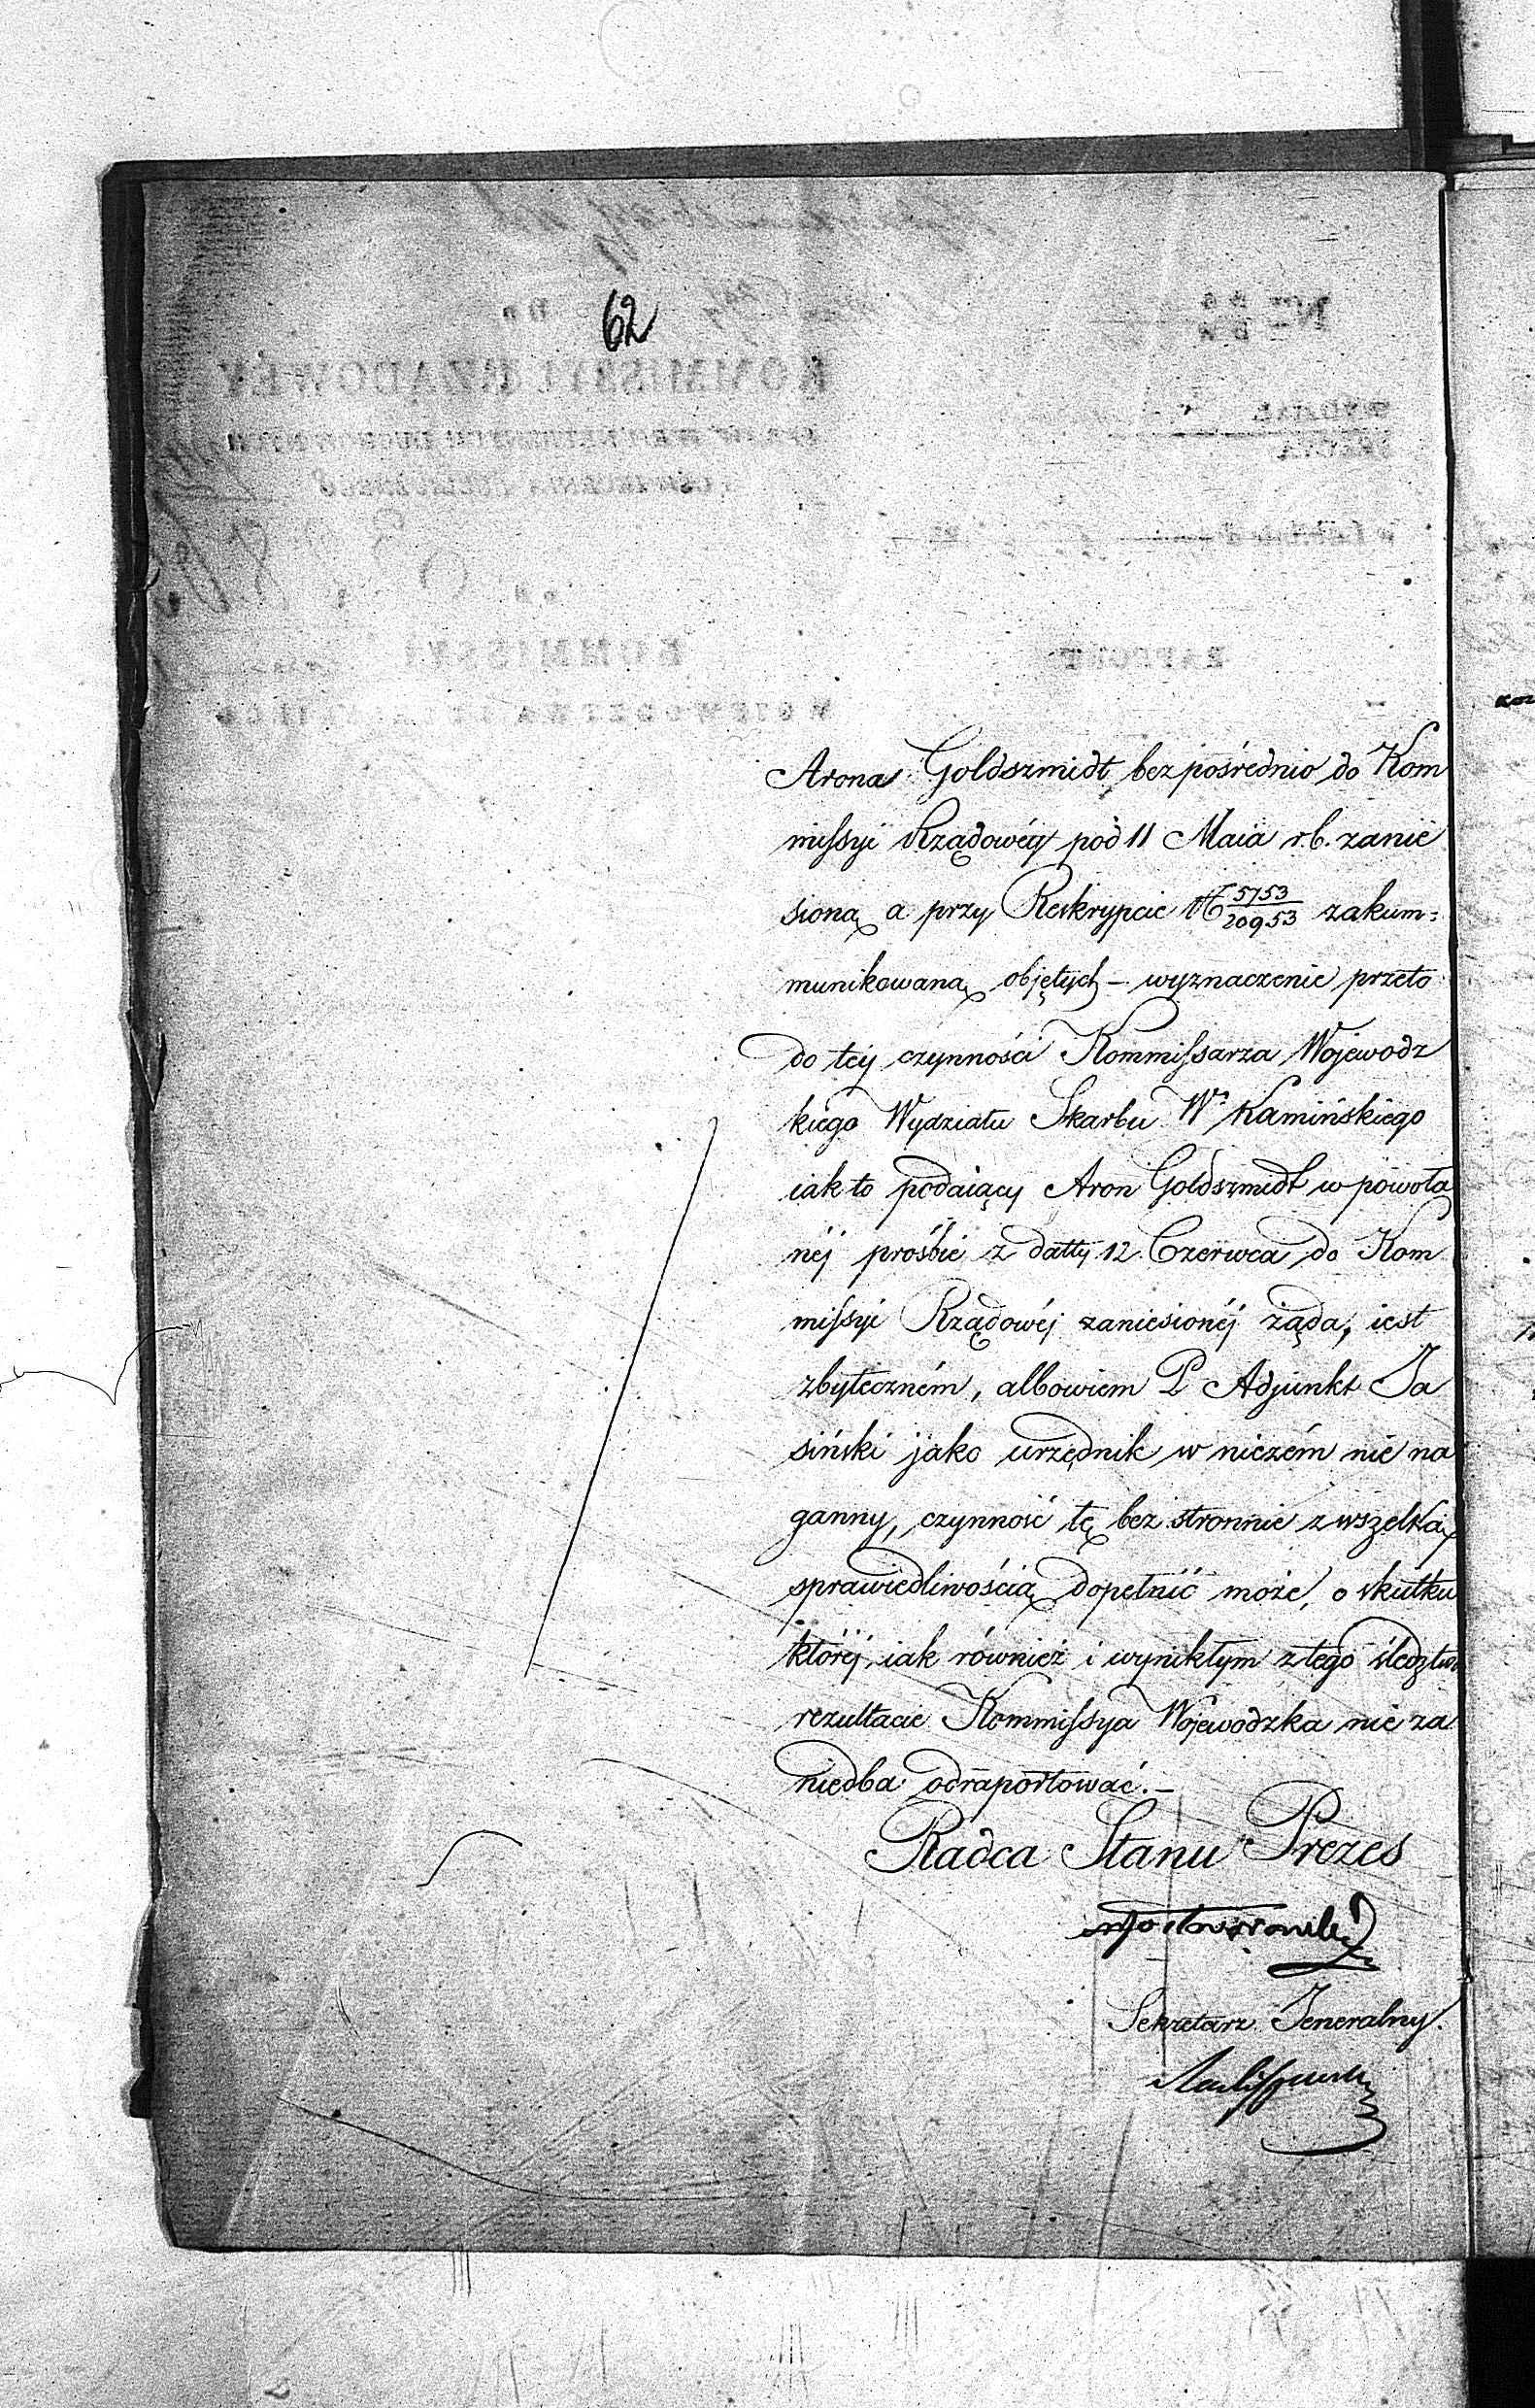 62
Arona Goldszmidt bezpośrednio do Kom
missyi Rządowéy pod 11 Maia r.b. zanie
sioną a przy Reskrypcie № 5753/20953 zakom=
munikowaną objętych – wyznaczenie przeto
do téy czynności Kommissarza Wojewodz
kiego Wydziału Skarbu Wº Kamińskiego
iak to podaiący Aron Goldszmidt w powoła
néj prośbie z datty 12 Czerwca do Kom
missyi Rządowéj zaniesionéj żąda, iest
zbyteczném, albowiem P Adjunkt Ja
siński jako urzędnik w niczém nie na
ganny, czynność tę bez stronnie z wszelką
sprawiedliwością dopełnić może, o skutku
któréj, iak również i wynikłym z tego śledztwa
rezultacie Kommissya Wojewodzka nie za
niedba odraportować. –
Radca Stanu Prezes
Sekretarz Jeneralny.